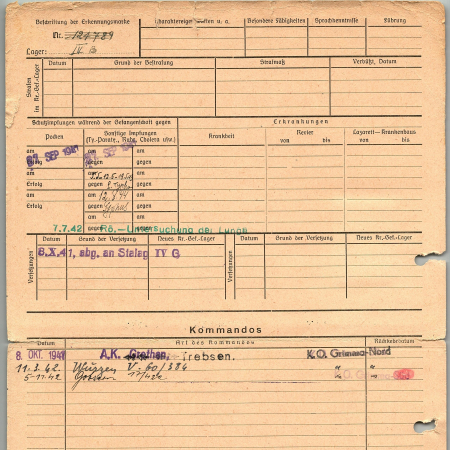 Beschriftung der Erkennungsmaske
Nr. 124789
Lager: IV B
Charaktereigenschaften u. a.
Besondere Fähigkeiten
Sprachkenntnisse
Führung
Strafen im Kr.-Gef.-Lager
Datum
Grund der Bestrafung
Strafmaß
Verbüßt, Datum
Schutzimpfungen während der Gefangenschaft gegen
Erkrankungen
Pocken
Sonstige Impfungen
(Ty.-Paraty., Ruhr, Cholera usw.)
Krankheit
Revier
von bis
Lazarett—Krankenhaus
von bis
am am am
SEP 1941 SEP
am gegen gegen
am am am
Erfolg gegen gegen
am am
Erfolg gegen gegen
am am
gegen gegen
7.7.42 Rö.—Untersuchung der Lunge
Versetzungen
Datum
Grund der Versetzung
Neues Kr.-Gef.-Lager
Versetzungen
Datum
Grund der Versetzung
Neues Kr.-Gef.-Lager
8.X.41, abg. an Stalag IV G
Kommandos
Datum
Art des Kommandos
Rückkehrdatum
8. OKT. 1941 A.K. Grethen, Trebsen. K.O. Grimma-Nord
11.3.42 Wurzen V. 60/384 " "
5-11-42